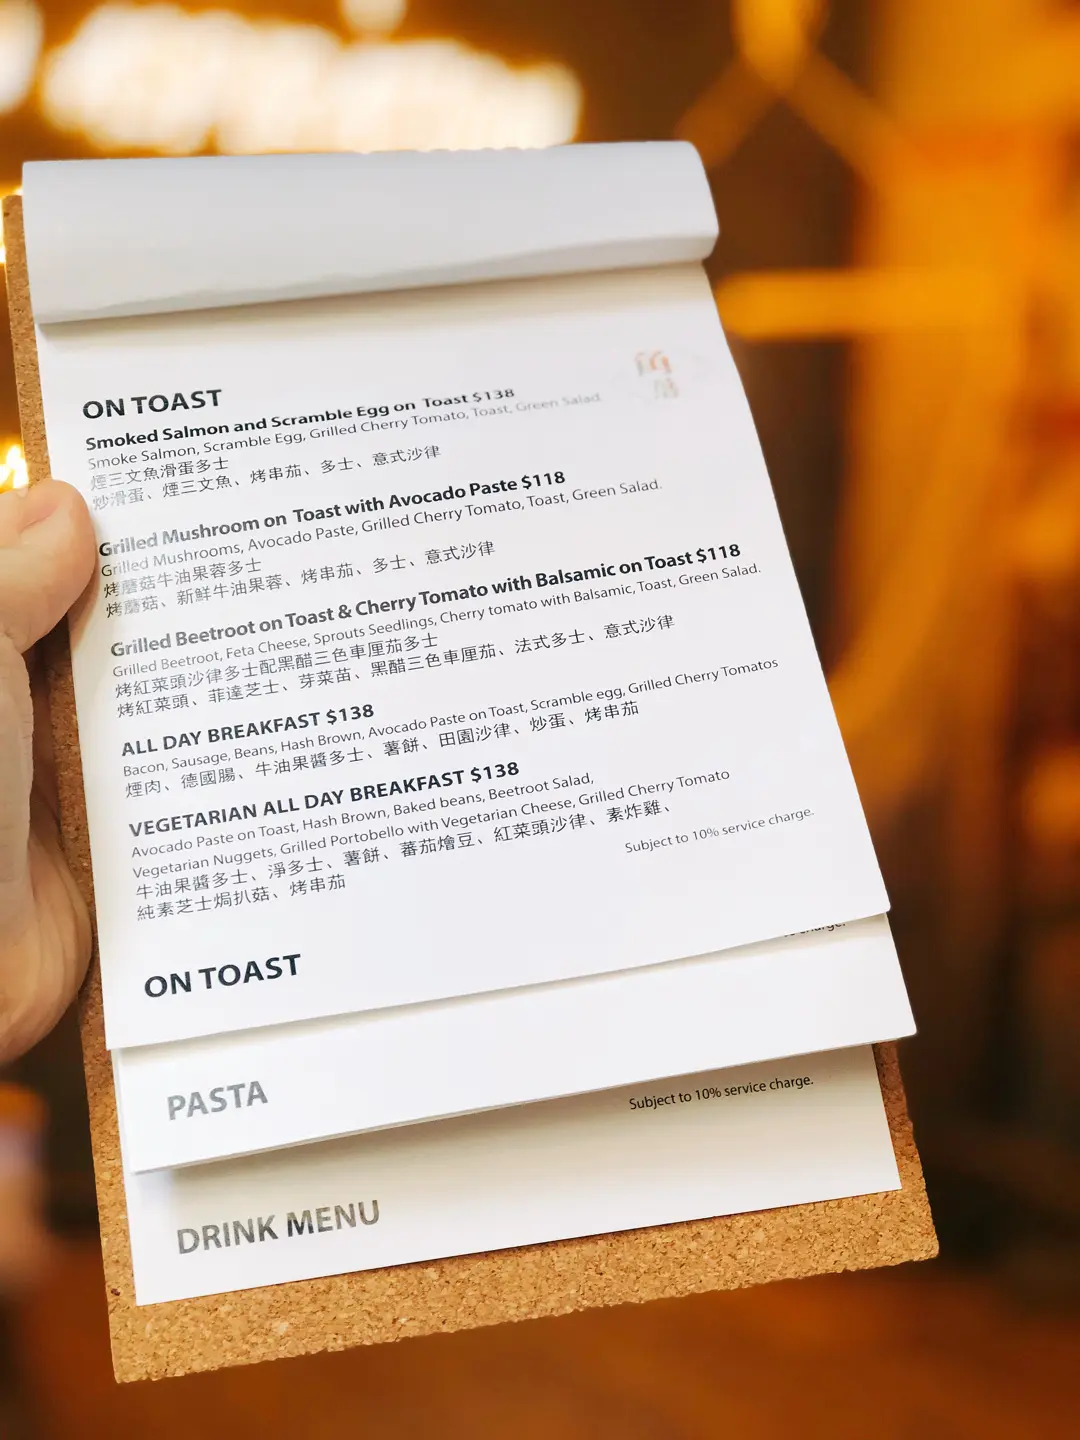 ON TOAST
Smoked Salmon and Scramble Egg on Toast $138
Smoke Salmon, Scramble Egg, Grilled Cherry Tomato, Toast, Green Salad.
煙三文魚滑蛋多士
炒滑蛋、煙三文魚、烤串茄、多士、意式沙律
Grilled Mushroom on Toast with Avocado Paste $118
Grilled Mushrooms, Avocado Paste, Grilled Cherry Tomato, Toast, Green Salad.
烤蘑菇牛油果蓉多士
烤蘑菇、新鮮牛油果蓉、烤串茄、多士、意式沙律
Grilled Beetroot on Toast & Cherry Tomato with Balsamic on Toast $118
Grilled Beetroot, Feta Cheese, Sprouts Seedlings, Cherry tomato with Balsamic, Toast, Green Salad.
烤紅菜頭沙律多士配黑醋三色車厘茄多士
烤紅菜頭、菲達芝士、芽菜苗、黑醋三色車厘茄、法式多士、意式沙律
ALL DAY BREAKFAST $138
Bacon, Sausage, Beans, Hash Brown, Avocado Paste on Toast, Scramble egg, Grilled Cherry Tomatos
煙肉、德國腸、牛油果醬多士、薯餅、田園沙律、炒蛋、烤串茄
VEGETARIAN ALL DAY BREAKFAST $138
Avocado Paste on Toast, Hash Brown, Baked beans, Beetroot Salad,
Vegetarian Nuggets, Grilled Portobello with Vegetarian Cheese, Grilled Cherry Tomato
牛油果醬多士、淨多士、薯餅、蕃茄燴豆、紅菜頭沙律、素炸雞、
純素芝士焗扒菇、烤串茄
Subject to 10% service charge.
ON TOAST
charge.
PASTA
Subject to 10% service charge.
DRINK MENU